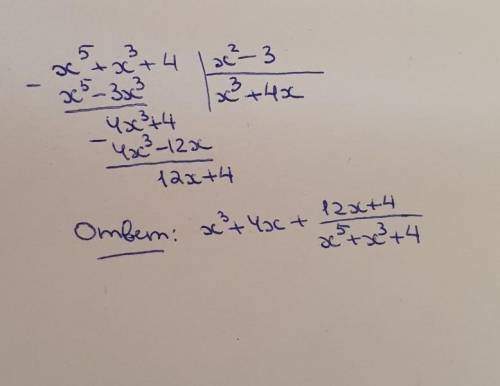 - x⁵ + x³ + 4 | x² - 3
x⁵ - 3x³ | x³ + 4x
4x³ + 4
- 4x³ - 12x
12x + 4
Ответ: x³ + 4x + (12x + 4)/(x⁵ + x³ + 4)